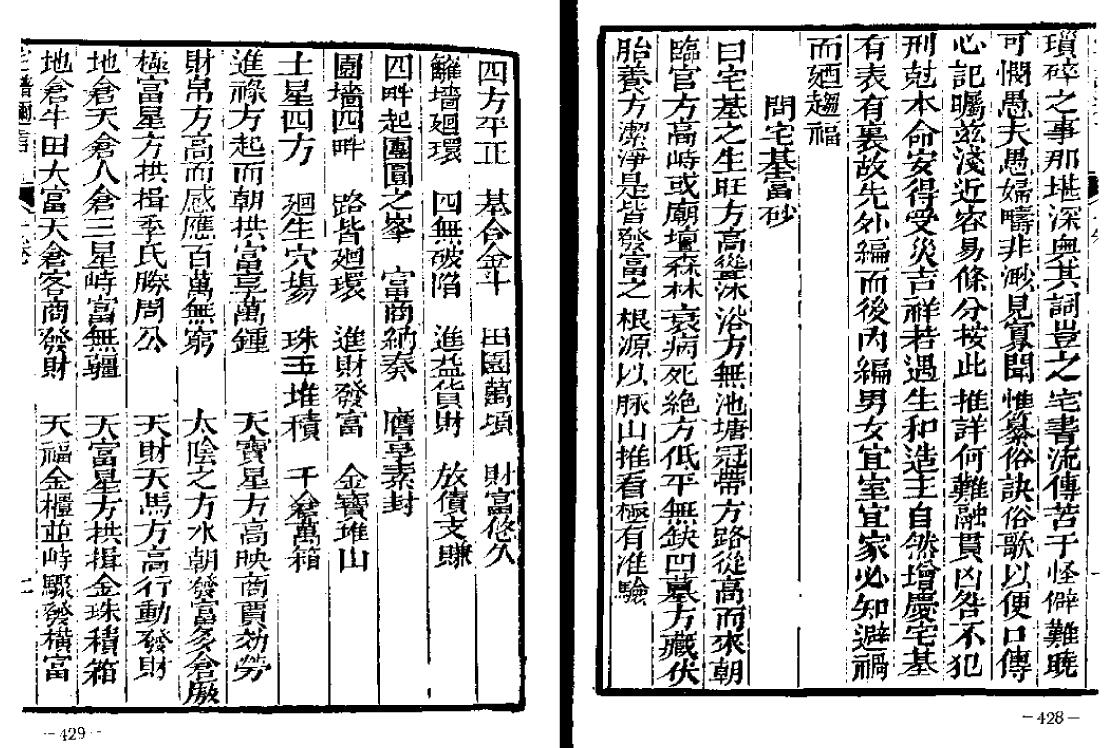 瑣碎之事那堪深奧其詞豈之宅書流傳苦于怪僻難曉
可憫愚夫愚婦疇非渺見寡聞惟纂俗訣俗歌以便口傳
心記囑茲淺近容易條分按此推詳何難融貫凶咎不犯
刑尅本命安得受災吉祥若遇生和造主自然增慶宅基
有表有裏故先外編而後內編男女宜室宜家必知避禍
而廼趨福
問宅基富砂
曰宅基之生旺方高從深浴方無池塘冠帶方路從高而來朝
臨官方高峙或廟壇森森衰病死絕方低平無缺凹墓方藏伏
胎養方潔淨是皆發富之根源以脉山推看極有准驗
－428－
四方平正 基合金斗 田園萬頃 財富悠久
羅墻廻環 四無破陷 進益貨財 放債支賺
四畔起團圓之峯 富商納奏 膺享素封
團墻四畔 路皆廻環 進財發富 金寶堆山
土星四方 廻生穴場 珠玉堆積 千倉萬箱
進祿方起而朝拱富享萬鍾 天寶星方高映商賈効勞
財帛方高而感應百萬無窮 太陰之方水朝發富多倉廒
極富星方拱揖季氏勝周公 天財天馬方高行動發財
地倉天倉人倉三星峙富無疆 天富星方拱揖金珠積箱
地倉牛田大富天倉客商發財 天福金櫃並峙驟發橫富
－429－